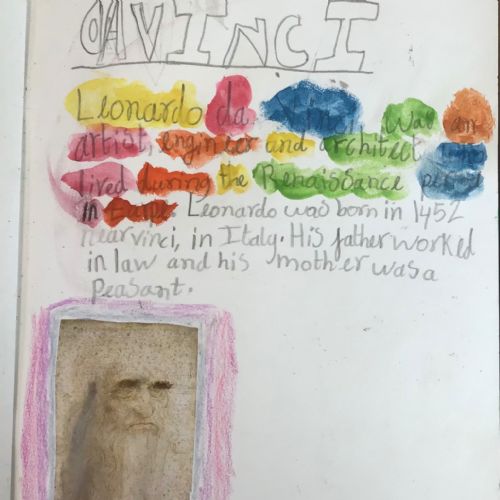 dAVINCI
Leonardo da Vinci was an
artist, engineer and architect who
lived during the Renaissance period
in Europe. Leonardo was born in 1452
near vinci, in Italy. His father worked
in law and his mother was a
peasant.